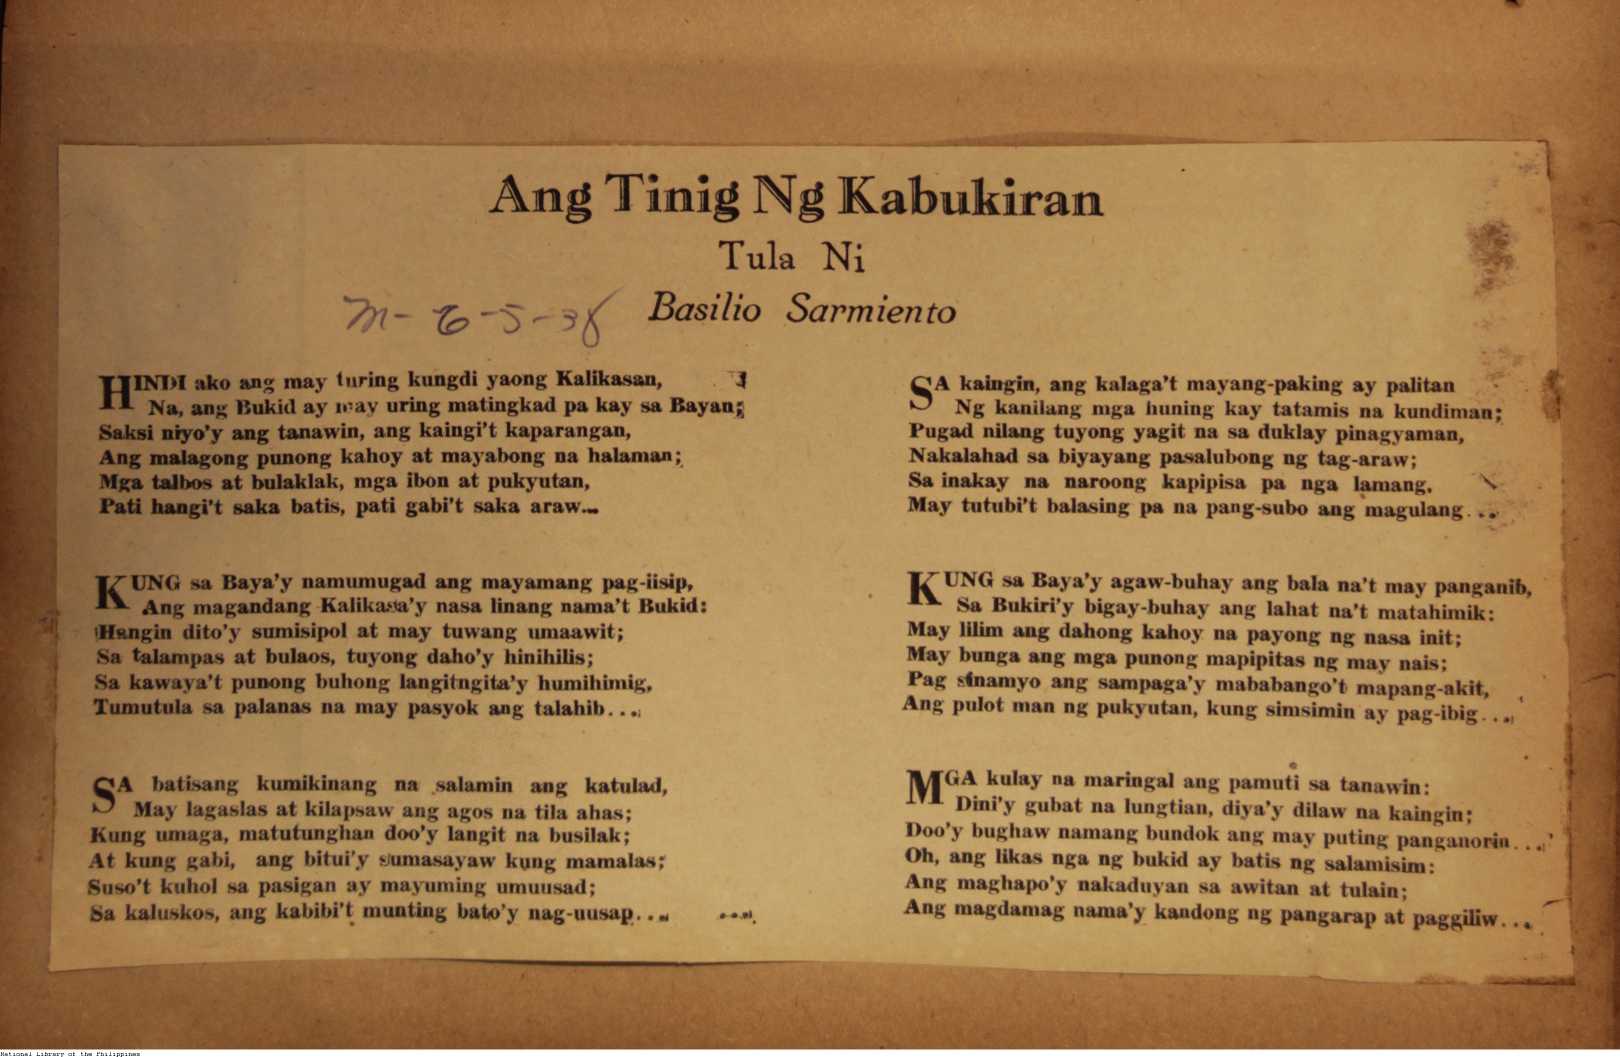 Ang Tinig Ng Kabukiran
Tula Ni
Basilio Sarmiento
M-6-5-38
HINDI ako ang may turing kungdi yaong Kalikasan,
Na, ang Bukid ay may uring matingkad pa kay sa Bayan;
Saksi niyo'y ang tanawin, ang kaingi't kaparangan,
Ang malagong punong kahoy at mayabong na halaman;
Mga talbos at bulaklak, mga ibon at pukyutan,
Pati hangi't saka batis, pati gabi't saka araw...
KUNG sa Baya'y namumugad ang mayamang pag-iisip,
Ang magandang Kalikasa'y nasa linang nama't Bukid:
Hangin dito'y sumisipol at may tuwang umaawit;
Sa talampas at bulaos, tuyong daho'y hinihilis;
Sa kawaya't punong buhong langitngita'y humihimig,
Tumutula sa palanas na may pasyok ang talahib...
SA batisang kumikinang na salamin ang katulad,
May lagaslas at kilapsaw ang agos na tila ahas;
Kung umaga, matutunghan doo'y langit na busilak;
At kung gabi, ang bitui'y sumasayaw kung mamalas;
Suso't kuhol sa pasigan ay mayuming umuusad;
Sa kaluskos, ang kabibi't munting bato'y nag-uusap...
SA kaingin, ang kalaga't mayang-paking ay palitan
Ng kanilang mga huning kay tatamis na kundiman;
Pugad nilang tuyong yagit na sa duklay pinagyaman,
Nakalahad sa biyayang pasalubong ng tag-araw;
Sa inakay na naroong kapipisa pa nga lamang,
May tutubi't balasing pa na pang-subo ang magulang...
KUNG sa Baya'y agaw-buhay ang bala na't may panganib,
Sa Bukiri'y bigay-buhay ang lahat na't matahimik:
May lilim ang dahong kahoy na payong ng nasa init;
May bunga ang mga punong mapipitas ng may nais;
Pag sinamyo ang sampaga'y mababango't mapang-akit,
Ang pulot man ng pukyutan, kung simsimin ay pag-ibig...
MGA kulay na maringal ang pamuti sa tanawin:
Dini'y gubat na lungtian, diya'y dilaw na kaingin;
Doo'y bughaw namang bundok ang may puting panganorin...
Oh, ang likas nga ng bukid ay batis ng salamisim:
Ang maghapo'y nakaduyan sa awitan at tulain;
Ang magdamag nama'y kandong ng pangarap at paggiliw...
National Library of the Philippines